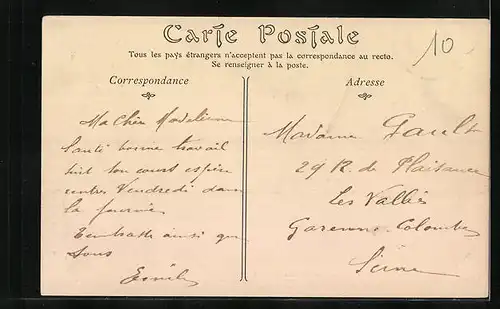 Carte Postale
10
Tous les pays étrangers n'acceptent pas la correspondance au recto.
Se renseigner à la poste.
Correspondance
Ma Chère Madeleine
Santé bonne travail
suit son cours espère
rentrer Vendredi dans
la journée
T'embrasse ainsi que
tous
Emile
Adresse
Madame Gault
29 R. de Plaisance
Les Vallées
Garenne-Colombes
Seine